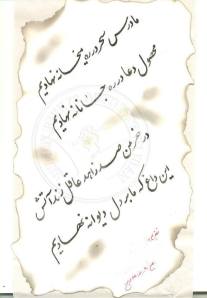 ما درس سحر در ره میخانه نهادیم
محصول دعا در ره جانانه نهادیم
در خرمن صد زاهد عاقل زند آتش
این داغ که ما بر دل دیوانه نهادیم